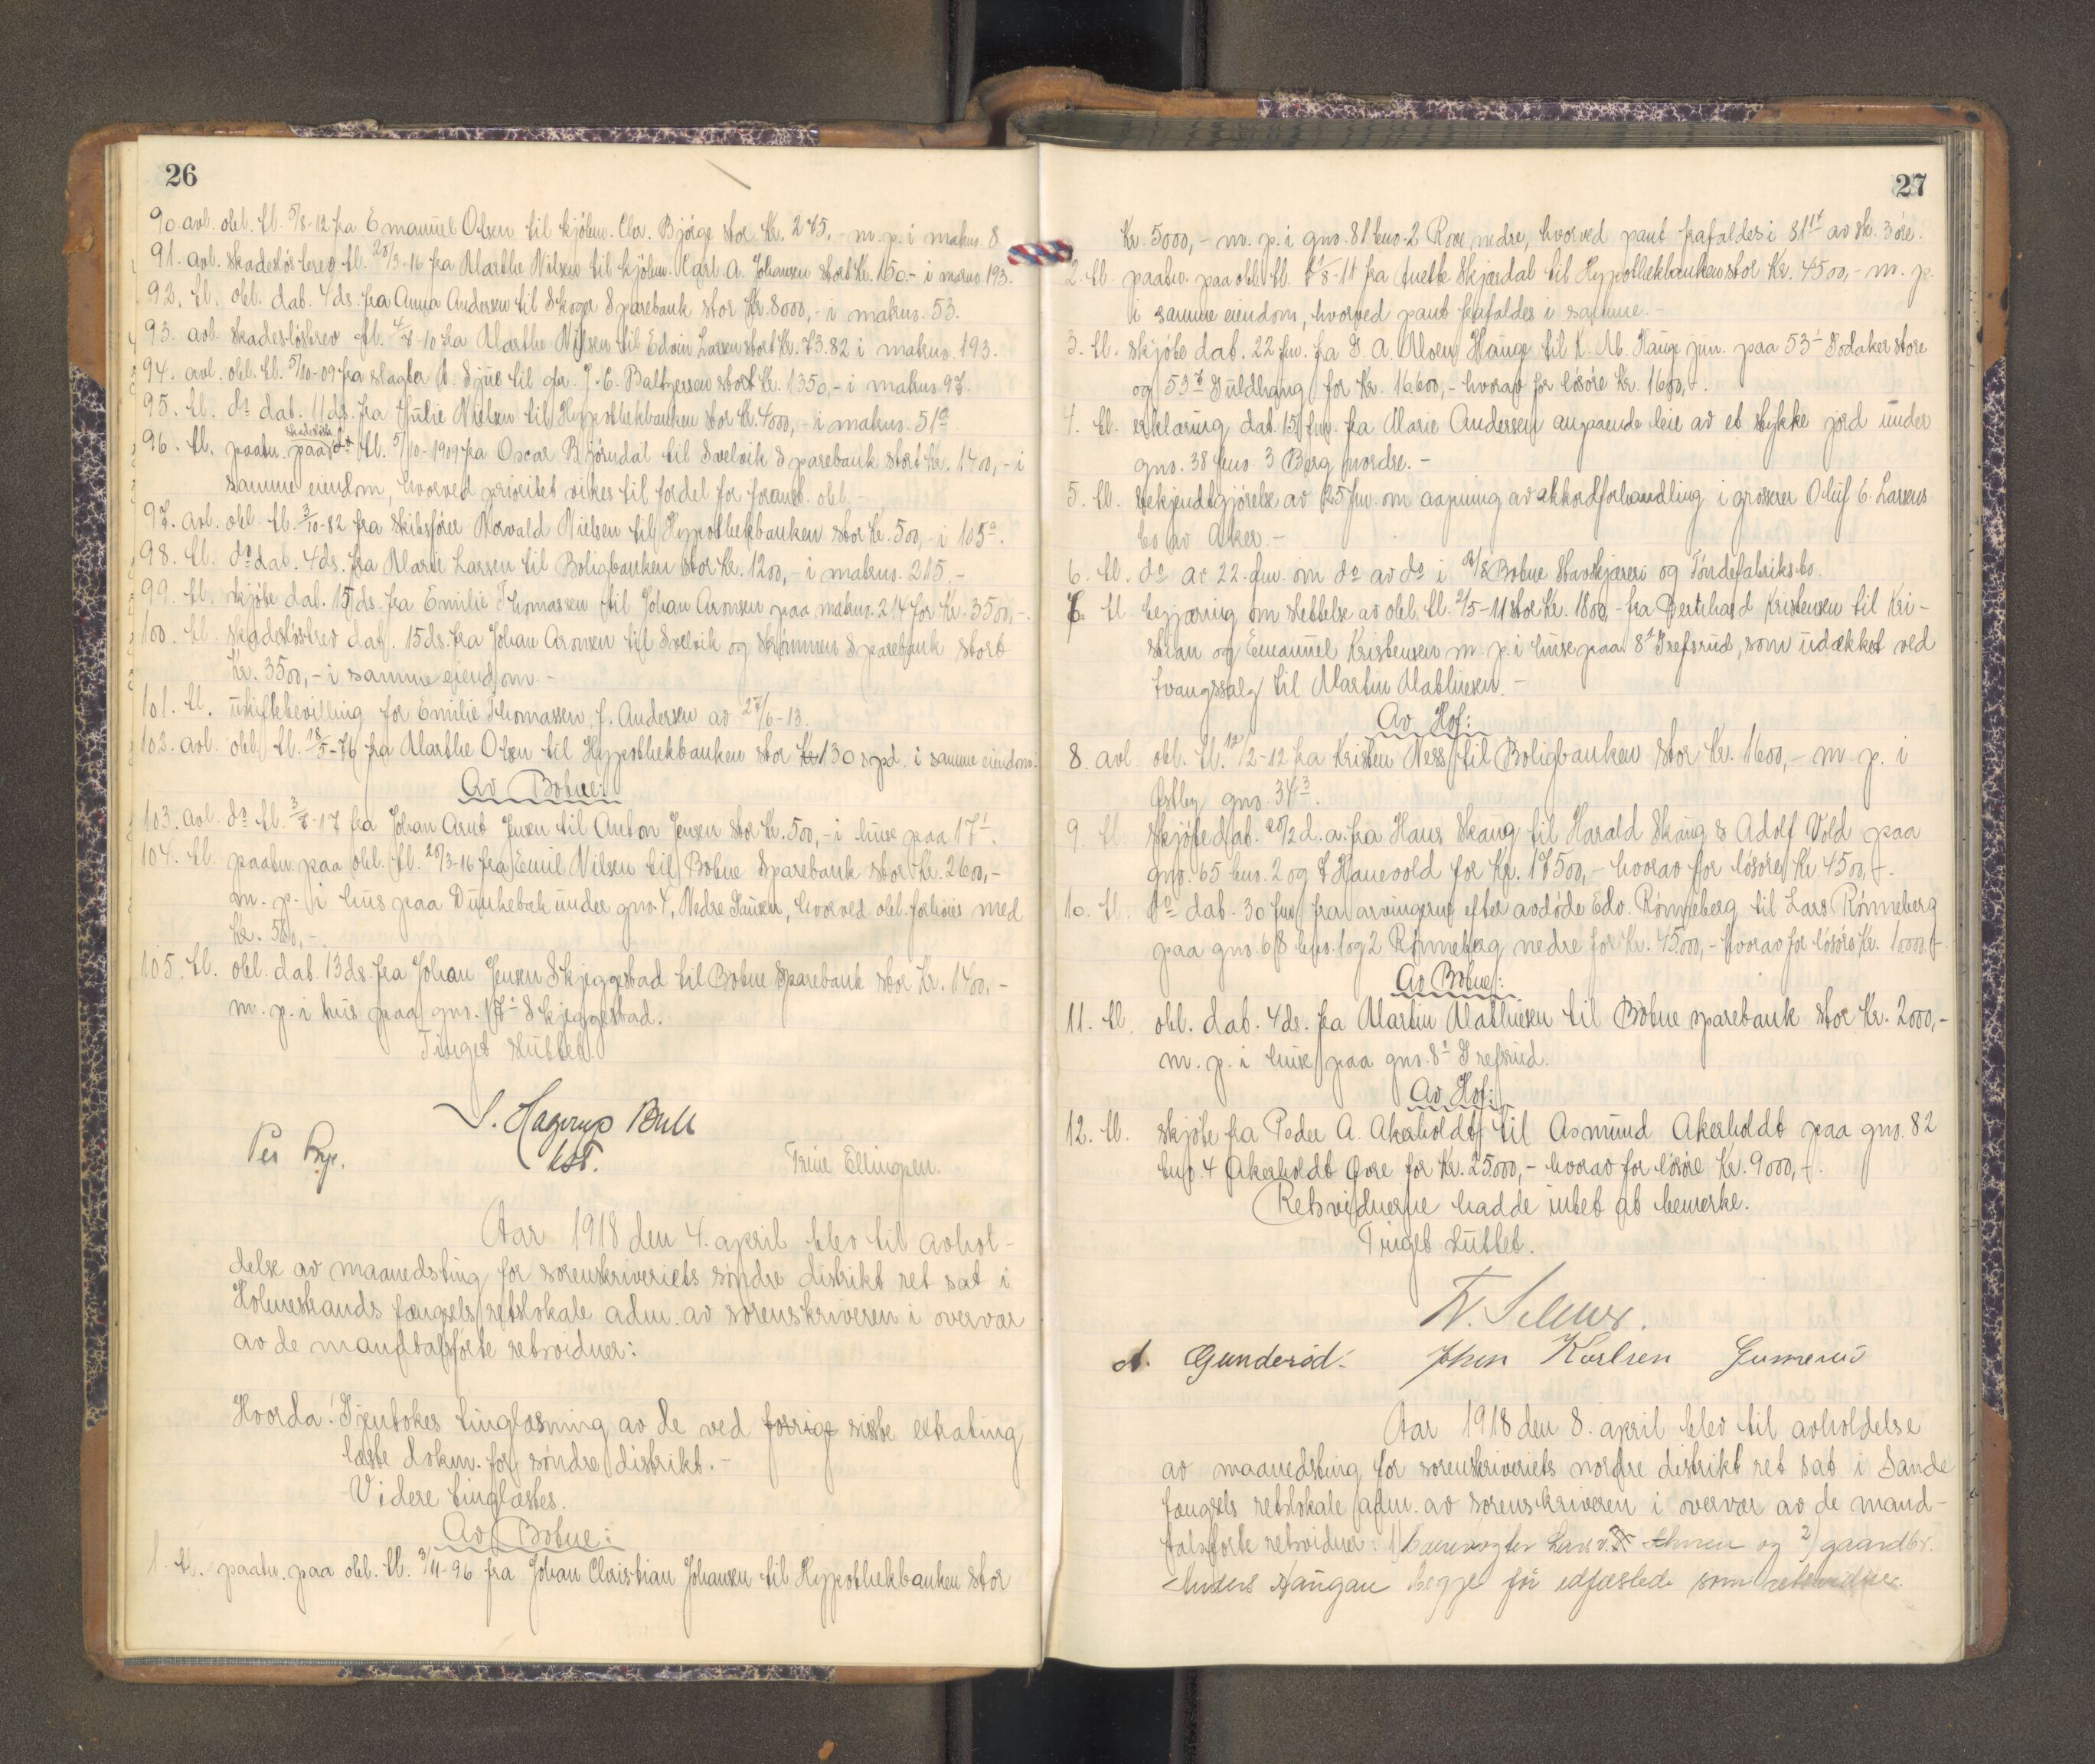 26
90. avl. obl. tl. 5/8-12 fra Emanuel Olsen til kjöbm. Chr. Bjørge stor Kr. 245,- m. p. i matrno. 8
91. avl. skadeslösbrev tl. 20/3-16 fra Marthe Nilsen til kjöbm. Carl A. Johansen stort Kr. 150.- i matrno. 193.
92. tl. obl. dat. 4 ds. fra Anna Andersen til Skoger Sparebank stor Kr. 8000,- i matrno. 53.
93. avl. skadeslösbrev tl. 4/8-10 fra Marthe Nilsen til Edvin Larsen stort Kr. 73.82 i matrno. 193.
94. avl. obl. tl. 5/10-09 fra slagter A. Sjue til gbr. J. C. Baltzersen stort Kr. 1350,- i matrno 97.
95. tl. do dat. 11 ds. fra Julie Nielsen til Hypothekbanken stor Kr. 4000,- i matrno. 51a.
96. tl. paatn. paa skadeslösb. tl. 5/10-1909 fra Oscar Bjørndal til Svelvik Sparebank stort Kr. 1400,- i
samme eiendom, hvorved prioritet vikes til fordel for forannt. obl.-
97. avl. obl. tl. 3/10-82 fra skibsfører Norvald Nielsen til Hypothekbanken stor Kr. 500,- i 105a.
98. tl. do dat. 4 ds. fra Marie Larsen til Boligbanken stor Kr. 1200,- i matrno. 215.-
99. tl. skjöte dat. 15 ds. fra Emilie Thomassen til Johan Aronsen paa matrno. 214 for Kr. 3500,-.
100. tl. skadeslösbrev dat. 15 ds. fra Johan Aronsen til Svelvik og Strömmen Sparebank stort
Kr. 3500,- i samme eiendom.-
101. tl. uskiftebevilling for Emilie Thomassen f. Andersen av 27/6-13.
102. avl. obl. tl. 18/5-76 fra Marthe Olsen til Hypothekbanken stor Kr 130 spd. i samme eiendom.
Av Botne:
103. avl. do tl. 3/8-17 fra Johan Arnt Jensen til Anton Jensen stor Kr. 500,- i huse paa 17¹.
104. tl. paatn. paa obl. tl. 20/3-16 fra Emil Nilsen til Botne Sparebank stor Kr. 2600,-
m. p. i hus paa Dunkebek under gno. 4, Nedre Sauen, hvorved obl. forhöies med
Kr. 500,-.
105. tl. obl. dat. 13 ds. fra Johan Jensen Skjeggestad til Botne Sparebank stor Kr. 1400,-
m. p. i hus paa gno. 17¹ Skjeggestad.
Tinget sluttet.
S. Hagerup Bull
kst.
Per Rye. Trine Ellingsen.
Aar 1918 den 4. april blev til avhol-
delse av maanedsting for sorenskriveriets söndre distrikt ret sat i
Holmestrands fængsels retslokale adm. av sorenskriveren i overvær
av de mandtalsførte retsvidner:
Hvorda: Gjentokes tinglæsning av de ved forrige sidste ekstrating
læste dokum. for söndre distrikt.-
Videre tinglæstes.
Av Botne:
1. tl. paatn. paa obl. tl. 3/11-96 fra Johan Christian Johansen til Hypothekbanken stor
27
Kr. 5000,- m. p. i gno. 81 bno. 2 Rove nedre, hvorved pant frafaldes i 81¹⁴ av sk. 3 öre.
2. tl. paatn. paa obl. tl. 1/8-11 fra Anette Skjærdal til Hypothekbanken stor Kr. 4500,- m. p.
i samme eiendom, hvorved pant frafaldes i samme.-
3. tl. skjöte dat. 22 fm. fra G. A. Moen Hauge til K. M. Hauge jun. paa 53¹ Sodaker store
og 53⁷ Guldhaug for Kr. 16600,- hvorav for lösöre Kr. 1600,-.
4. tl. erklæring dat. 15 fm. fra Marie Andersen angaaende leie av et stykke jord under
gno. 38 bno. 3 Berg nordre.-
5. tl. bekjendtgjörelse av 25 fm. om aapning av akkordforhandling i grosserer Oluf C. Larsens
bo av Aker.-
6. tl. do av 22. fm. om do av do i A/S Botne Stavskjæreri og Töndefabriks bo.
7. tl. begjæring om slettelse av obl. tl. 2/5-11 stor Kr. 1800,- fra Berthard Kristensen til Kri-
stian og Emanuel Kristensen m. p. i huse paa 8¹ Grefsrud, som udækket ved
tvangssalg til Martin Mathisen.-
Av Hof:
8. avl. obl. tl. 12/2-12 fra Kristen Ness til Boligbanken stor Kr. 1600,- m. p. i
Østby gno. 34³.
9. tl. skjöte dat. 20/2 d. a. fra Hans Skaug til Harald Skaug & Adolf Vold paa
gno. 65 bno. 2 og 7 Hanevold for Kr. 17500,- hvorav for lösöre Kr. 4500,-.
10. tl. do dat. 30 fm. fra arvingerne efter avdöde Edv. Rönneberg til Lars Rönneberg
paa gno. 68 bno. 1 og 2 Rönneberg nedre for Kr. 45000,- hvorav for lösöre Kr. 10000,-.
Av Botne:
11. tl. obl. dat. 4 ds. fra Martin Mathisen til Botne sparebank stor Kr. 2000,-
m. p. i huse paa gno. 8¹ Grefsrud.
Av Hof:
12. tl. skjöte fra Peder A. Akerholdt til Asmund Akerholdt paa gno. 82
bno. 4 Akerholdt Övre for Kr. 25000,- hvorav for lösöre Kr. 9000,-.
Retsvidnerne hadde intet at bemerke.
Tinget sluttet.
A. Gunderød. Johan Karlsen
Aar 1918 den 8. april blev til avholdelse
av maanedsting for sorenskriveriets nordre distrikt ret sat i Sande
fængsels retslokale adm. av sorenskriveren i overvær av de mand-
talsførte retsvidner: 1) banevogter og 2) gaardbr.
Anders Haugan begge før edfæstede som retsvidner.